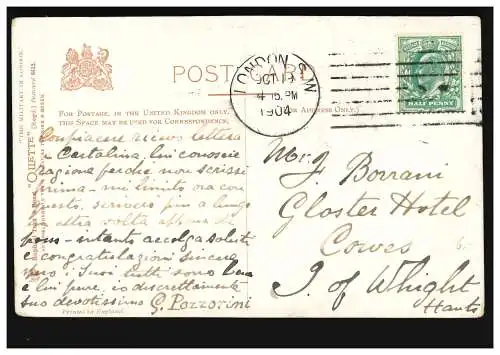 "THE MILITARY IN LONDON."
"OILETTE"
POSTCARD
FOR POSTAGE, IN THE UNITED KINGDOM ONLY,
THIS SPACE MAY BE USED FOR CORRESPONDENCE.
ADDRESS ONLY.)
LONDON. S.W.
OCT
4 15 PM
1904
HALF PENNY
Con piacere ricevo lettera
e Cartolina, lui conoscie
ragione perche non scrissi
prima - mi limito ora con
questo, scrivero piu a lungo
altra volta
posso - intanto accolga saluti
e congratulazioni sincere
Suoi tutti sono bene
e lui pure, io discrettamente
suo devotissimo G. Pozzorini
Printed in England.
Borrani
Gloster Hotel
Cowes
I of Whight
Hants